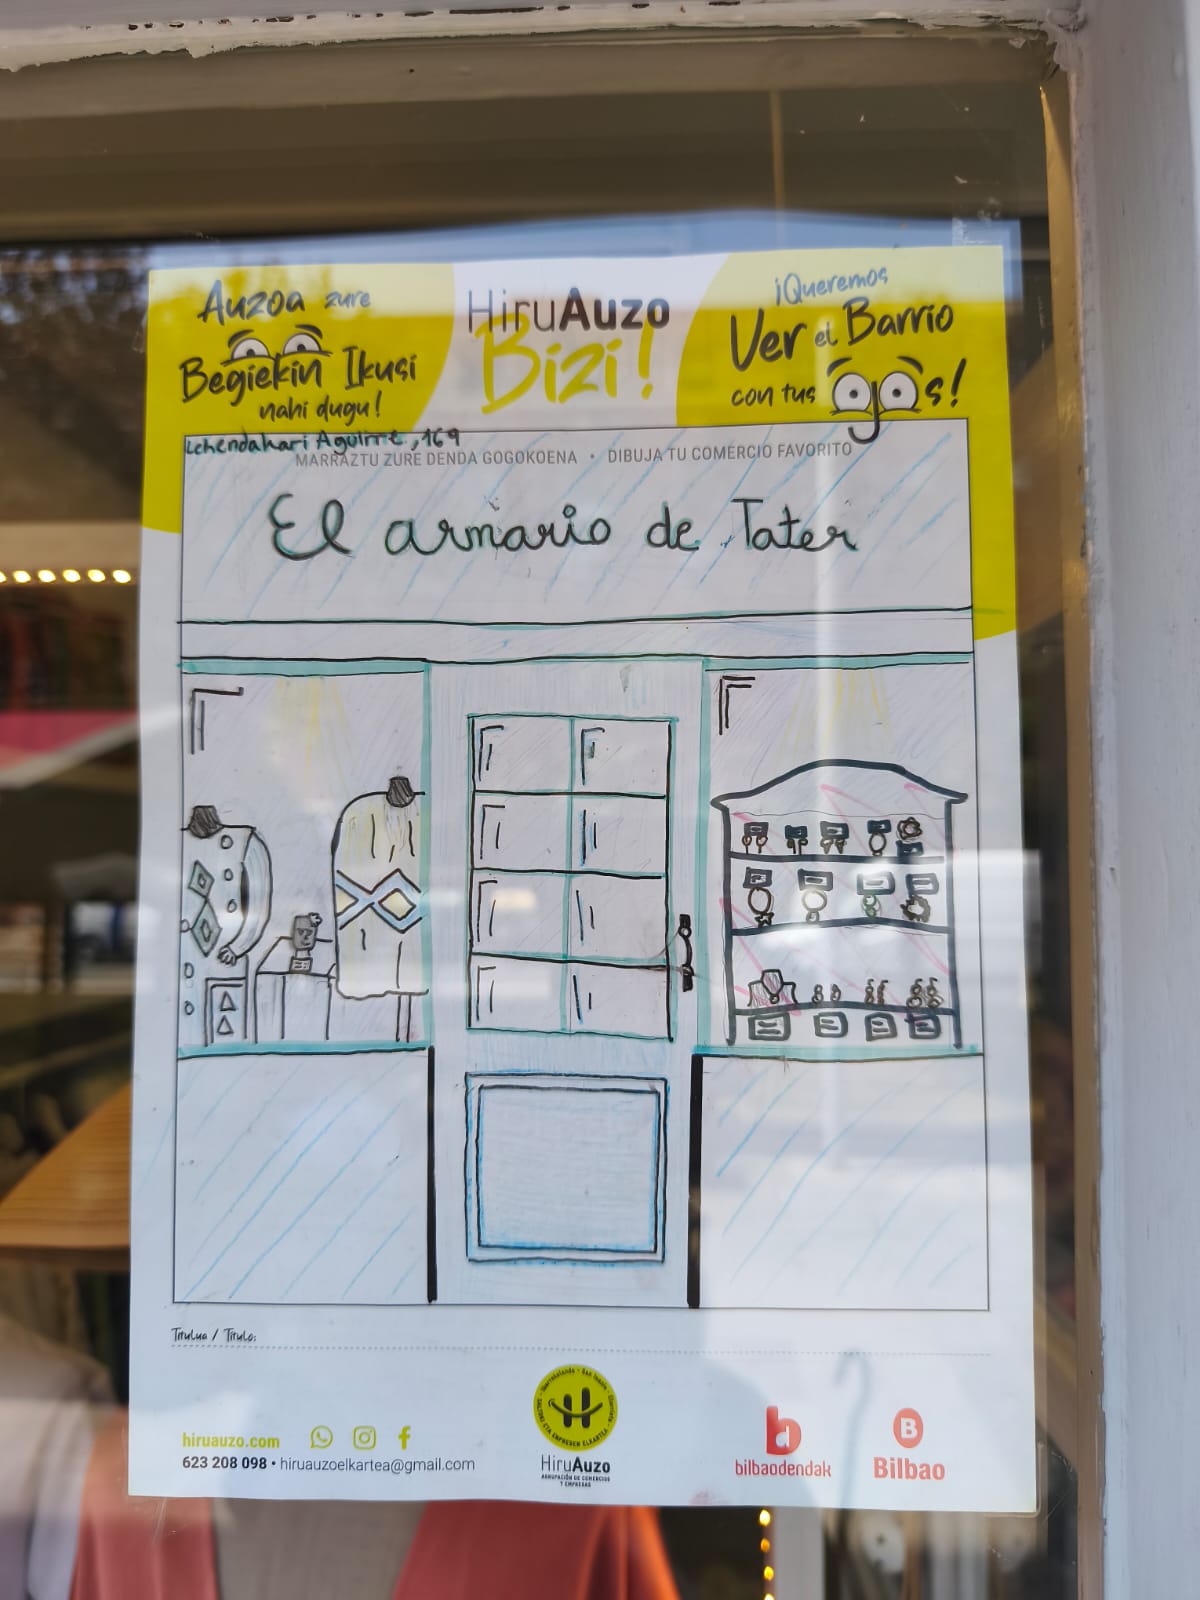 Auzoa zure
Begiekin Ikusi
nahi dugu!
HiruAuzo
Bizi!
¡Queremos
Ver el Barrio
con tus ojos!
Lehendakari Aguirre, 169
MARRAZTU ZURE DENDA GOGOKOENA • DIBUJA TU COMERCIO FAVORITO
El armario de Tater
Titulua / Título:
hiruauzo.com
623 208 098 • hiruauzoelkartea@gmail.com
HiruAuzo
AGRUPACIÓN DE COMERCIOS
Y EMPRESAS
bilbaodendak
B
Bilbao